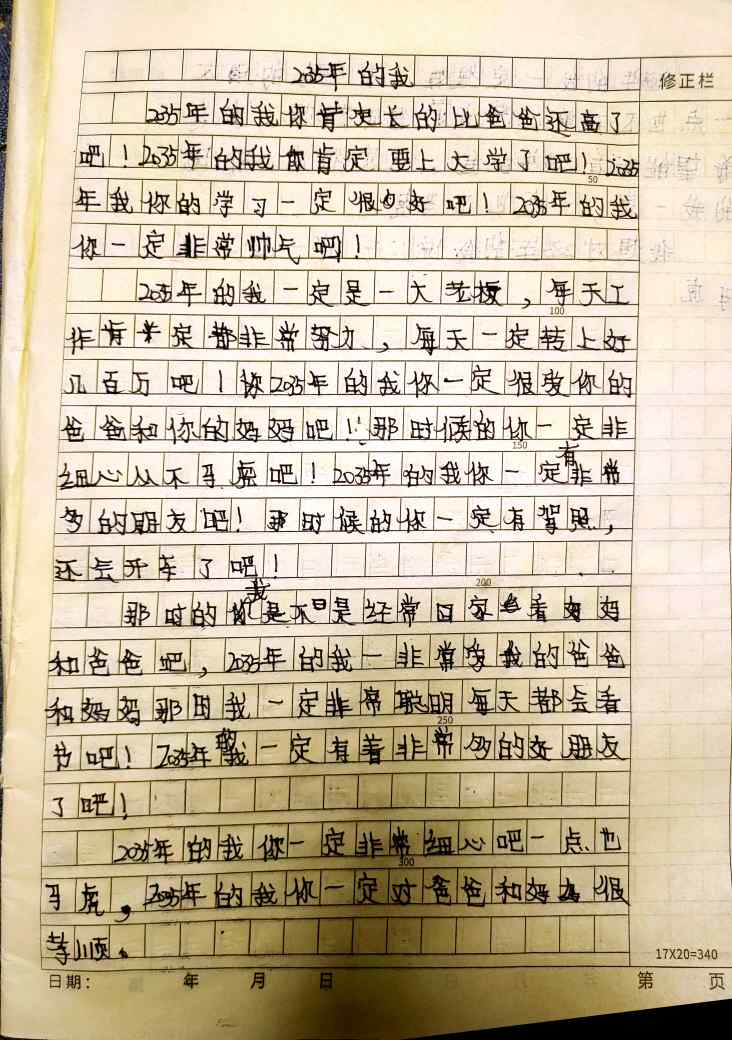 2035年的我
修正栏
2035年的我你肯定长的比爸爸还高了
吧！2035年的我你肯定要上大学了吧！2035
50
年我你的学习一定很好吧！2035年的我
你一定非常帅气吧！
2035年的我一定是一大老板，每天工
100
作肯定都非常努力，每天一定转上好
几百万吧！你2035年的我你一定很爱你的
爸爸和你的妈妈吧！那时候的你一定非
150
细心从不马虎吧！2035年的我你一定有非常
多的朋友吧！那时候的你一定有驾照，
还会开车了吧！
200
那时的我是不是经常回家看妈妈
和爸爸吧，2035年的我一非常爱我的爸爸
和妈妈那时我一定非常聪明每天都会看
250
书吧！2035年的我一定有着非常多的好朋友
了吧！
2035年的我你一定非常细心吧一点也
300
马虎，2035年的我你一定对爸爸和妈妈很
孝顺。
17X20=340
日期： 年 月 日 第 页